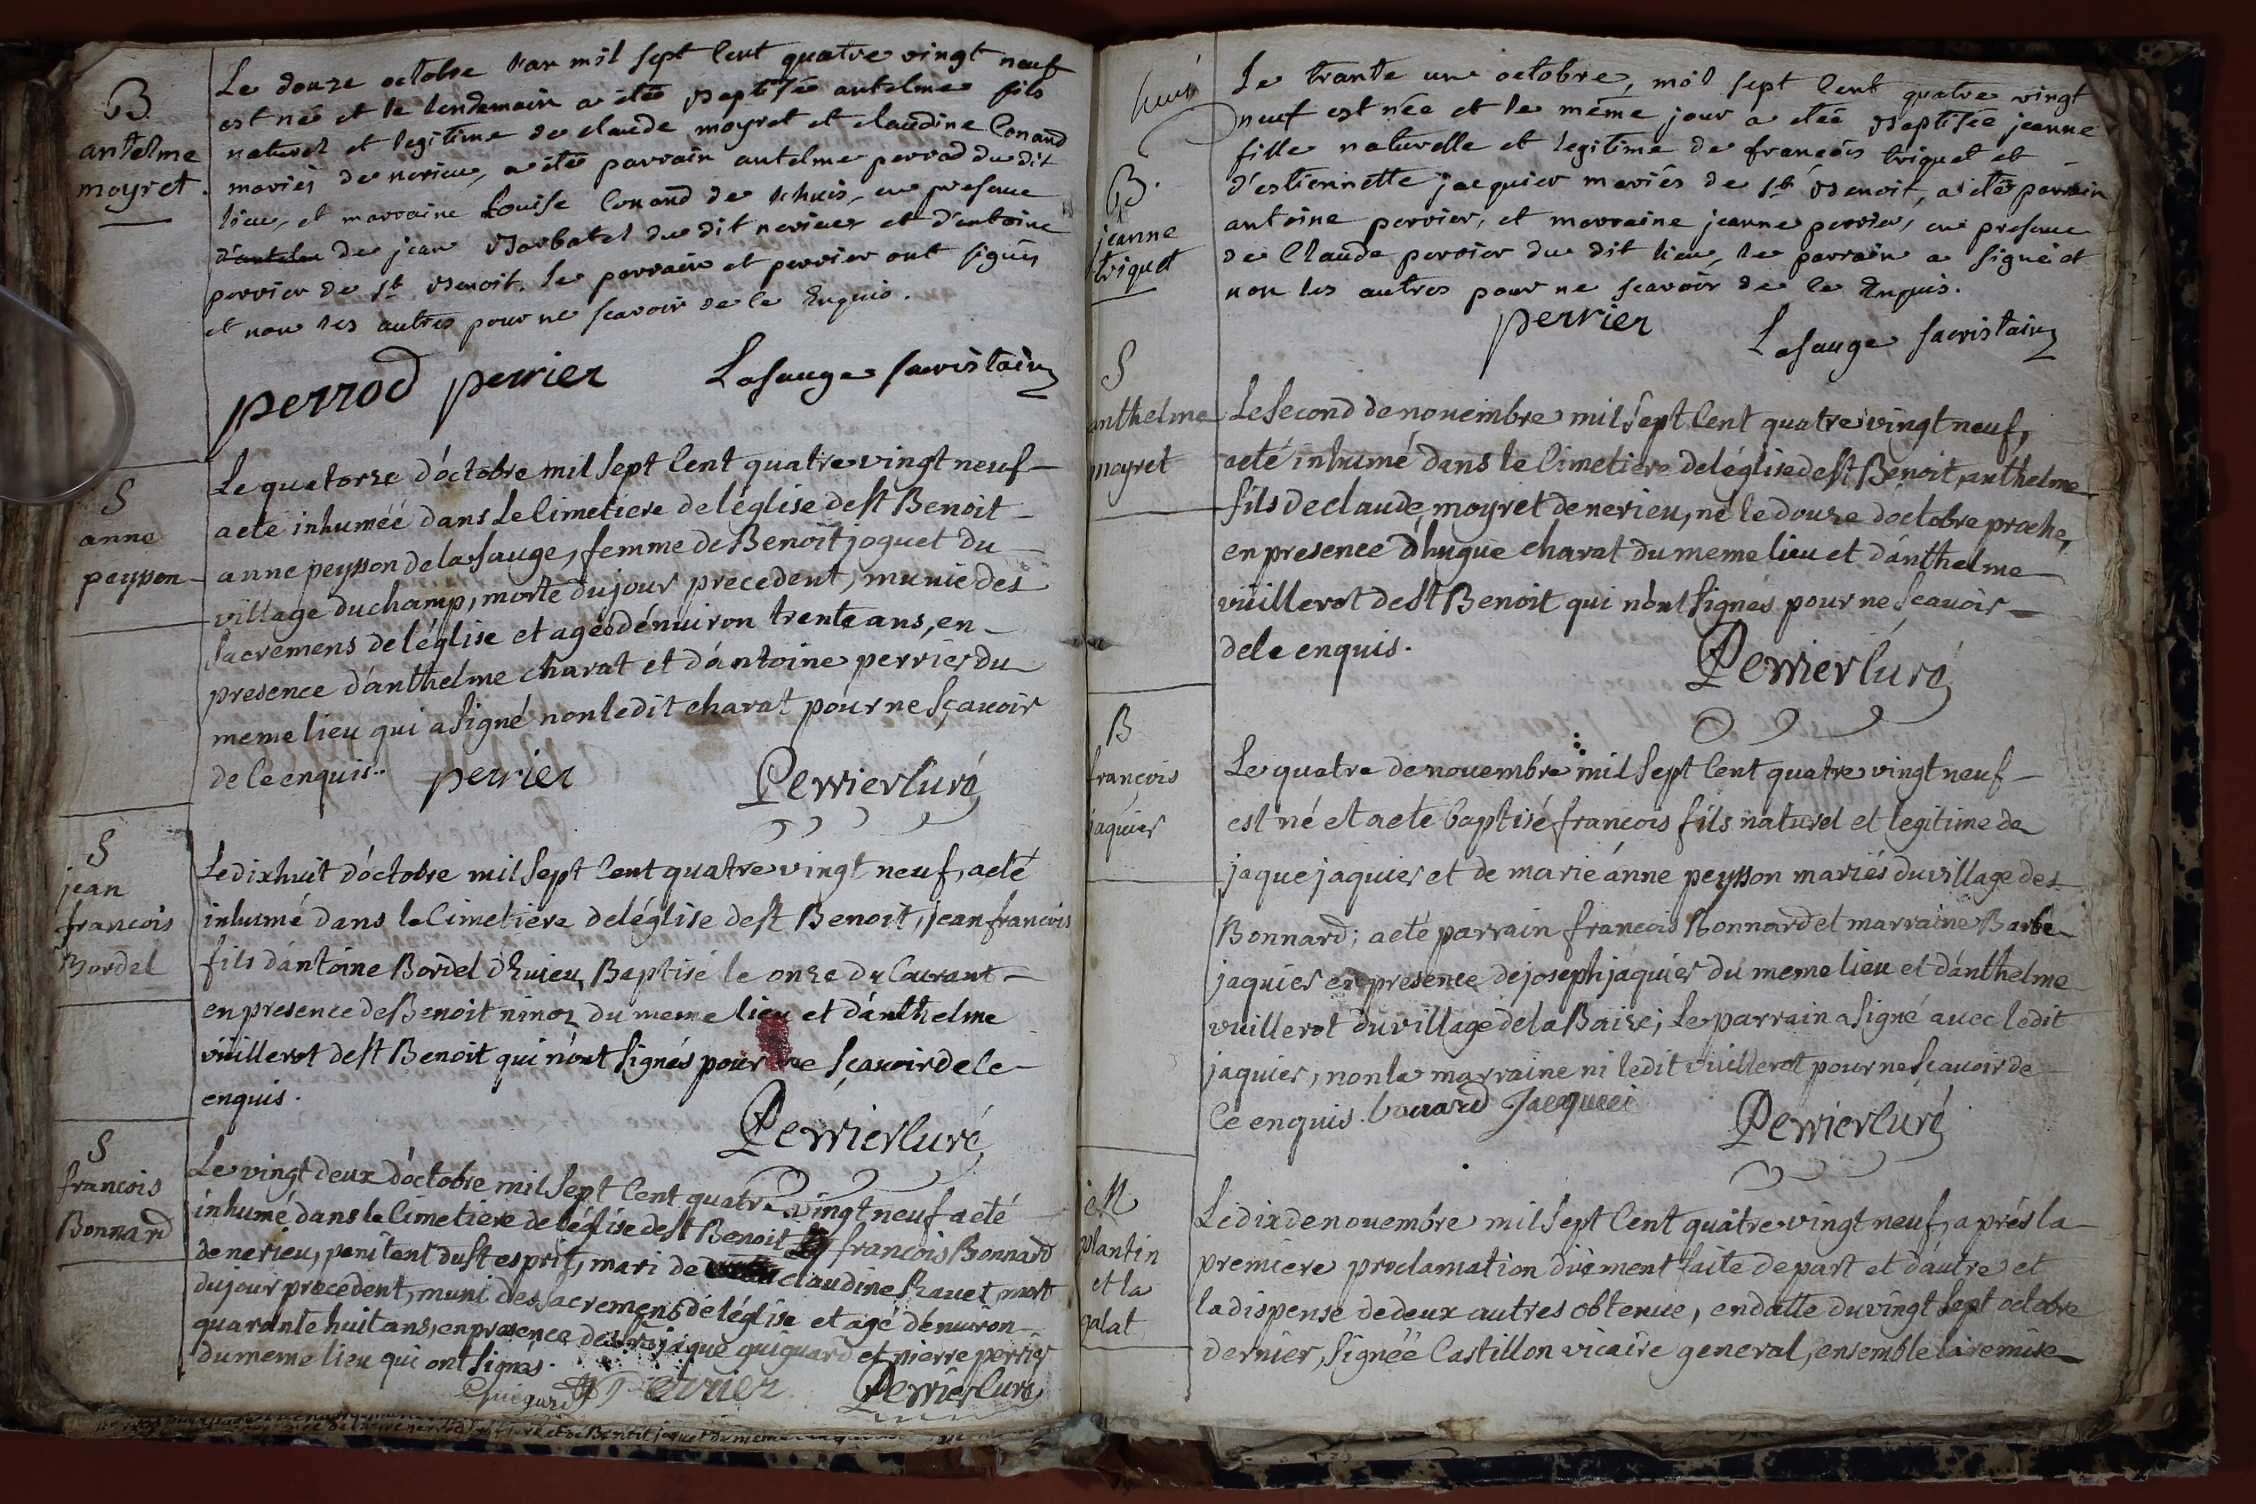 B
antelme
moyret.
Le douze octobre l'an mil sept cent quatre vingt neuf
est né et le lendemain a étée Baptisée antelme fils
naturel et legitime de claude moyret et claudine Conand
mariés de nerieu, a été parrain antelme perrod du dit
lieu, et marraine Louise Conand de lhuis, en presence
d'antelm de jean Barbatel du dit nerieu et d'antoine
perrier de st Benoit. le parrain et perrier ont signés
et non les autres pour ne scavoir de ce Enquis.
perrod perrier Lasauge sacristain
S
anne
peysson
Le quatorze d'octobre mil sept Cent quatre vingt neuf
a eté inhumée dans le Cimetiere de léglise de st Benoit
anne peysson de la sauge, femme de Benoit joquet du
village du champ, morte du jour precedent, munie des
sacremens de léglise et agée dénuiron trente ans, en
presence d'anthelme charat et d'antoine perrier du
meme lieu qui a signé non ledit charat pour ne sçauoir
de ce enquis. perrier Perrier Curé
S
jean
francois
Bordel
Le dix huit d'octobre mil sept Cent quatre vingt neuf, a eté
inhumé dans le Cimetiere de léglise de st Benoit, jean francois
fils d'antoine Bordel d'huieu, Baptisé le onze du Courant
en presence de Benoit ninoz du meme lieu et d'anthelme
vuillerot de st Benoit qui n'ont signés pour ne sçauoir de ce
enquis.
Perrier Curé
S
francois
Bonnard
Le vingt deux d'octobre mil sept Cent quatre vingt neuf a eté
inhumé dans le Cimetiere de léglise de st Benoit francois Bonnard
de nerieu, penitent du st esprit, mari de claudine Rauet, mort
du jour precedent, muni des sacremens de léglise et agé dénuiron
quarante huit ans, en presence de jaque guiguard et pierre perrier
du meme lieu qui ont signés.
guiguard Perrier Perrier Curé
B.
jeanne
triquet
Le trante un octobre, mil sept Cent quatre vingt
neuf est née et le même jour a étée Baptisée jeanne
fille naturelle et legitime de francois triquet et
d'estiennette jacquier mariés de st Benoit, a été parrain
antoine perrier, et marraine jeanne perrier, en presence
de Claude perrier du dit lieu, le parrain a signé et
non les autres pour ne scavoir de ce Enquis.
perrier
Lasauge sacristain
S
anthelme
moyret
Le second de nouembre mil sept Cent quatre vingt neuf,
a eté inhumé dans le Cimetiere de léglise de st Benoit, anthelme
fils de claude moyret de nerieu, né le douze d'octobre proche,
en presence d'hugue charat du meme lieu et d'anthelme
vuillerot de st Benoit qui n'ont signés pour ne sçauoir
de ce enquis.
Perrier Curé
B
françois
jaquier
Le quatre de nouembre mil sept Cent quatre vingt neuf
est né et a eté baptisé francois fils naturel et legitime de
jaque jaquier et de marie ánne peysson mariés du village des
Bonnard; a eté parrain francois Bonnard et marraine Barbe
jaquier en presence de joseph jaquier du meme lieu et d'anthelme
vuillerot du village de la Baise; Le parrain a signé avec ledit
jaquier, non la marraine ni ledit vuillerot pour ne sçauoir de
Ce enquis. bonard Jacquier
Perrier Curé
M
plantin
et la
galat
Le dix de nouembre mil sept Cent quatre vingt neuf, aprés la
premiere proclamation düement faite de part et d'autre et
la dispense de deux autres obtenue, en datte du vingt sept octobre
dernier, signéé Castillon vicaire general, ensemble la remise